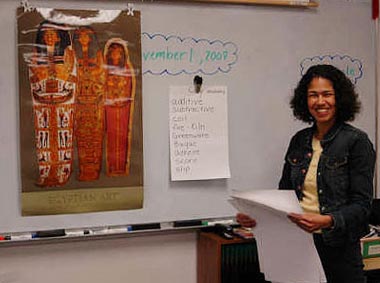 EGYPTIAN ART
vember 1, 2007
additive
subtractive
coil
fire-kiln
Greenware
Bisque
adhere
score
slip